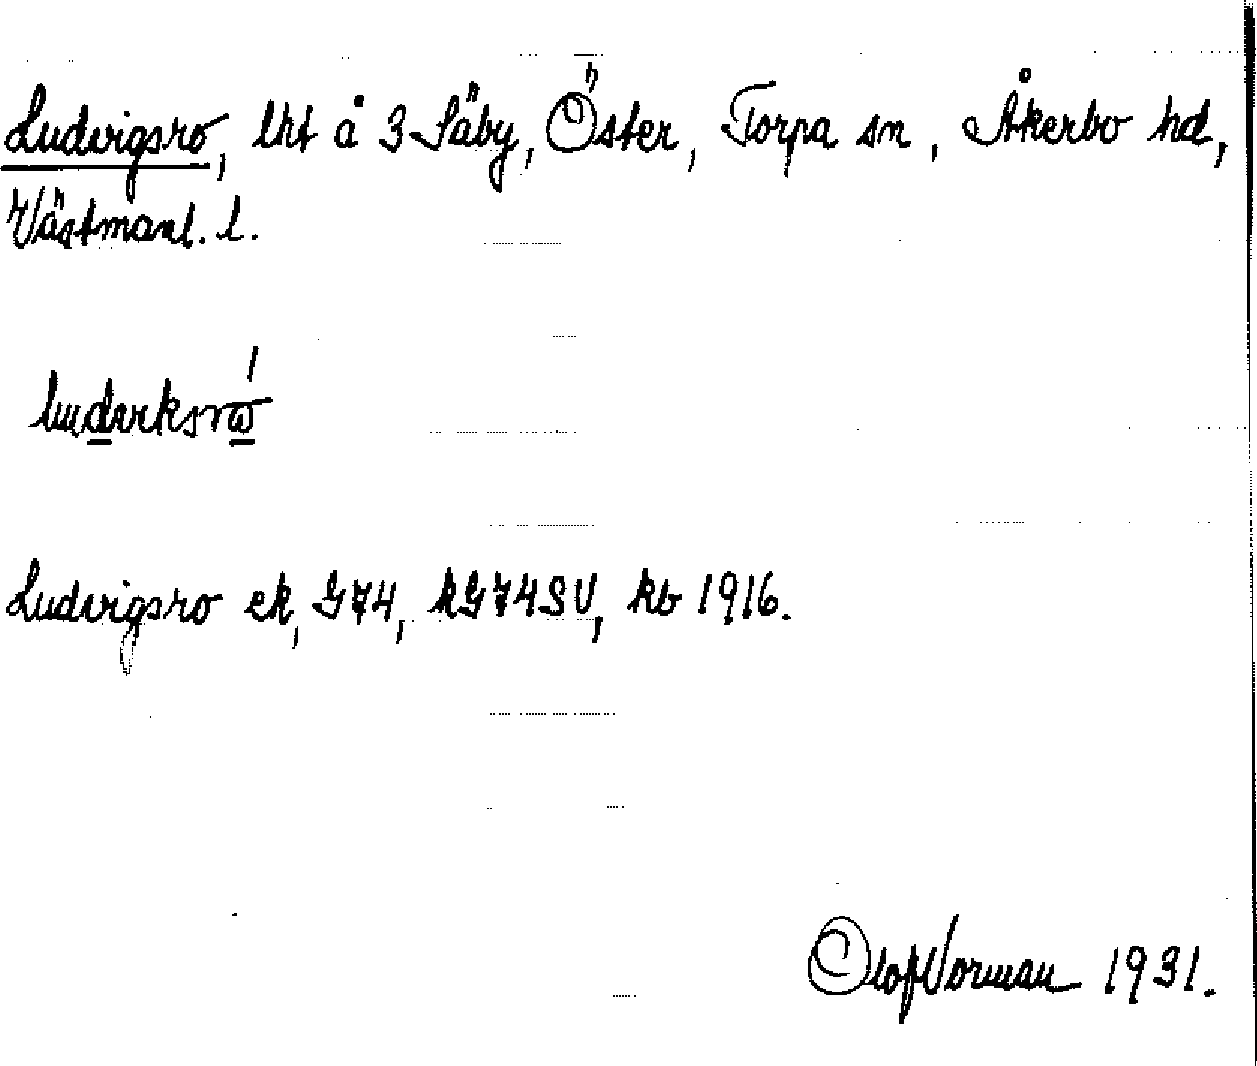 Ludvigsro, lht å 3 Säby, Öster, Torpa sn, Åkerbo hd,
Västmanl. l.
Ludvigsro ek, G74, kG74SV, kb 1916.
Olof Norman 1931.